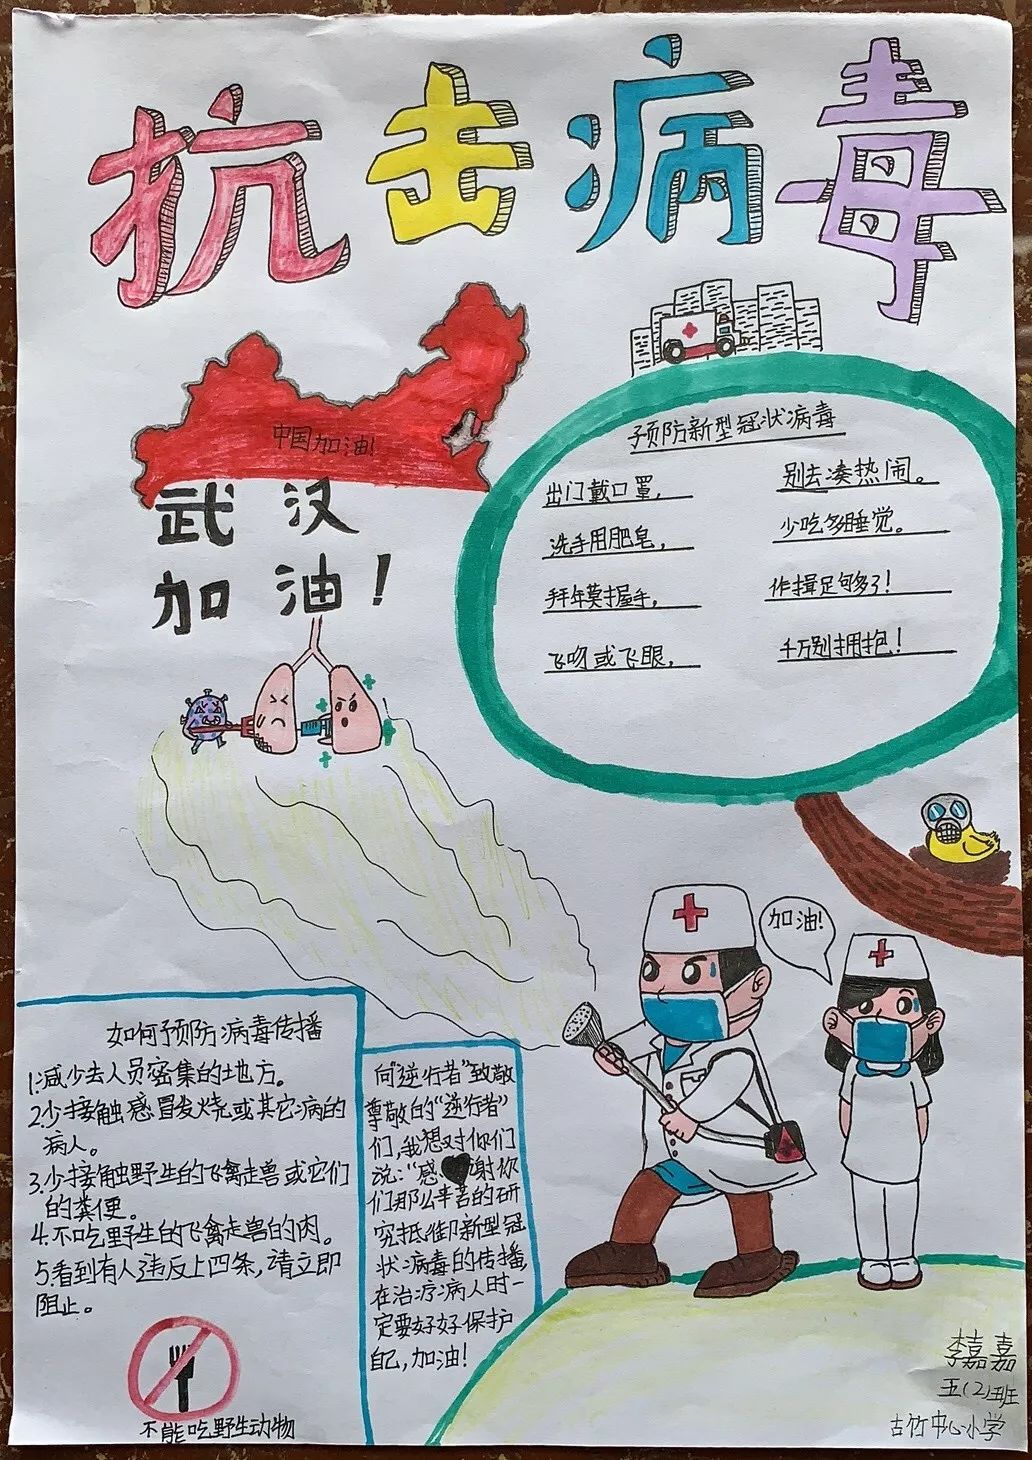 抗击病毒
中国加油!
武汉
加油!
预防新型冠状病毒
出门戴口罩,
别去凑热闹。
洗手用肥皂,
少吃多睡觉。
拜年莫握手,
作揖足够了!
飞吻或飞眼,
千万别拥抱!
加油!
如何预防病毒传播
1.减少去人员密集的地方。
2.少接触感冒发烧或其它病的
病人。
3.少接触野生的飞禽走兽或它们
的粪便。
4.不吃野生的飞禽走兽的肉。
5.看到有人违反上四条,请立即
阻止。
不能吃野生动物
向"逆行者"致敬
尊敬的"逆行者"
们,我想对你们
说:"感谢你
们那么辛苦的研
究抵御新型冠
状病毒的传播,
在治疗病人时一
定要好好保护
自己,加油!
李嘉嘉
五(2)班
古竹中心小学